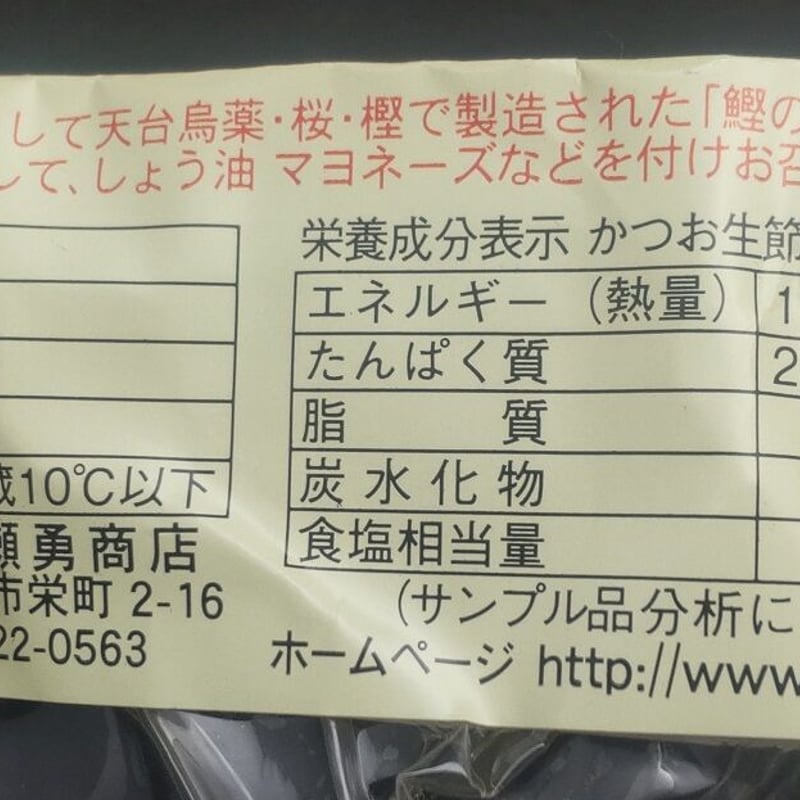 して天台烏薬・桜・樫で製造された「鰹の
して、しょう油 マヨネーズなどを付けお召
蔵10℃以下
瀬勇商店
市栄町 2-16
22-0563
栄養成分表示 かつお生節
エネルギー（熱量） 1
たんぱく質 2
脂質
炭水化物
食塩相当量
（サンプル品分析に
ホームページ http://www